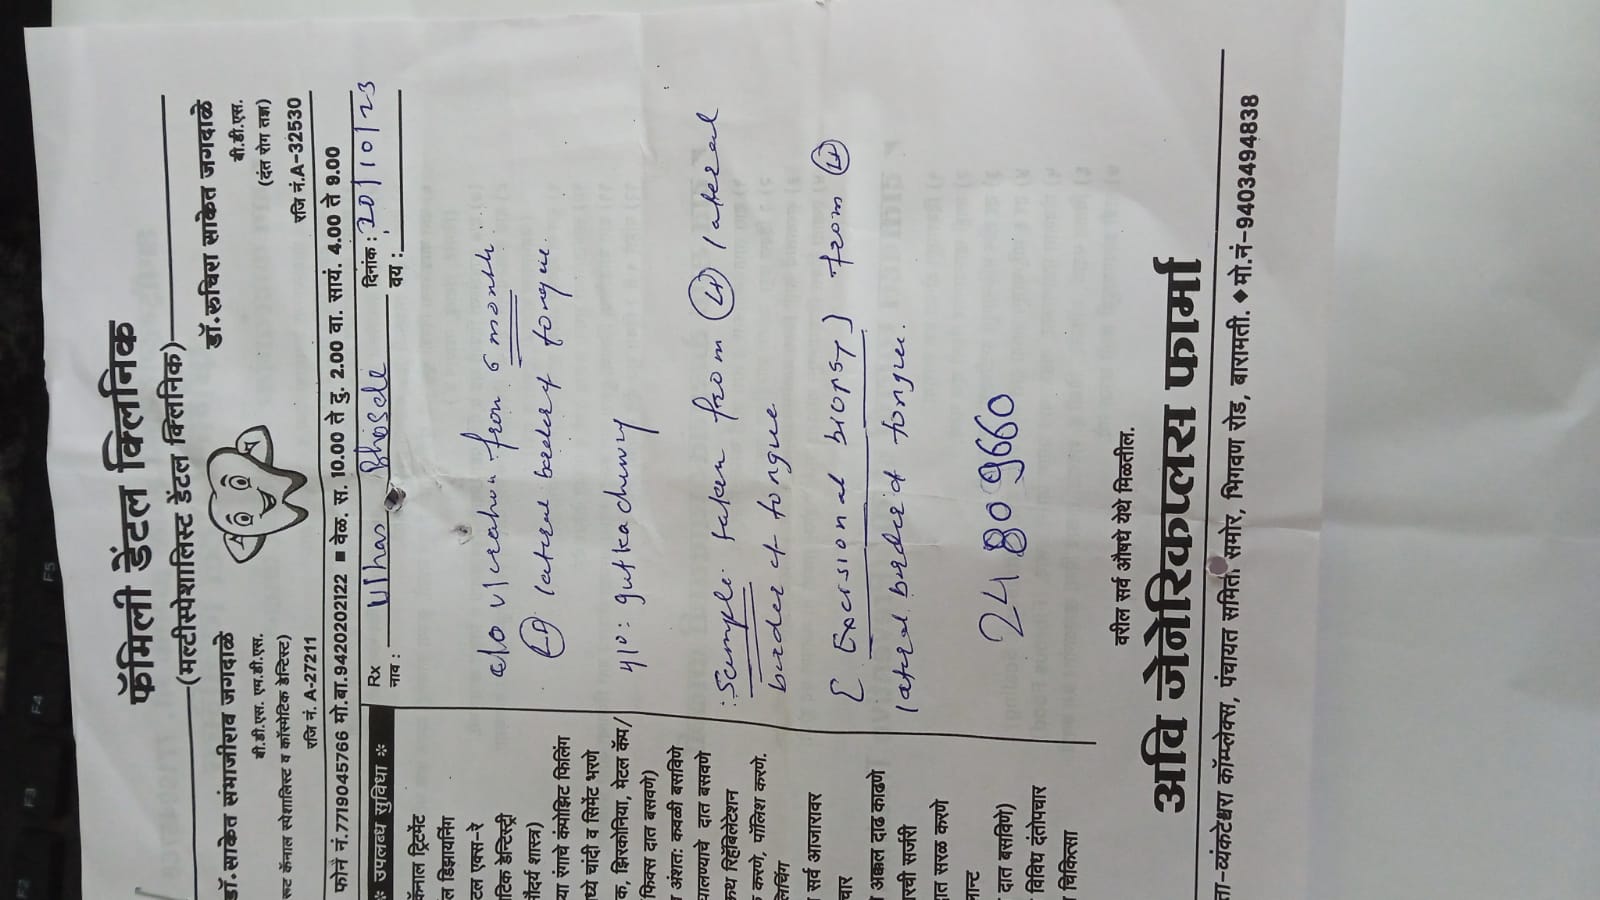 फॅमिली डेंटल क्लिनिक
(मल्टीस्पेशालिस्ट डेंटल क्लिनिक)
डॉ.साकेत संभाजीराव जगदाळे
बी.डी.एस. एम.डी.एस.
रूट कॅनाल स्पेशालिस्ट व कॉस्मेटिक डेन्टिस्ट)
रजि नं. A-27211
डॉ.रुचिरा साकेत जगदाळे
बी.डी.एस.
(दंत रोग तज्ञ)
रजि नं.A-32530
फोन नं.7719045766 मो.बा.9420202122 ■ वेळ. स. 10.00 ते दु. 2.00 वा. सायं. 4.00 ते 9.00
* उपलब्ध सुविधा *
कॅनाल ट्रिटमेंट
ल डिझायनिंग
टल एक्स-रे
टिक डेन्टिस्ट्री
ौंदर्य शास्त्र)
या रंगाचे कंपोझिट फिलिंग
ध्ये चांदी व सिमेंट भरणे
क, झिरकोनिया, मेटल कॅप/
फिक्स दात बसवणे)
अंशतः कवळी बसविणे
घालण्याचे दात बसवणे
रिहॅबिलेटेशन
करणे, पॉलिश करणे.
लिचिंग
सर्व आजारावर
चार
अक्कल दाढ काढणे
रची सर्जरी
दात सरळ करणे
लान्ट
दात बसविणे)
विविध दंतोपचार
चिकित्सा
Rx
नाव : Ulhas Bhosale
दिनांक : 20/10/23
वय :
c/o ulceration from 6 month
(Lt) lateral border of tongue.
H/O: gutkha chewing
:Sample: taken from (Lt) lateral
border of tongue
[ Excisional biopsy ] from (Lt)
lateral border of tongue.
24 809660
वरील सर्व औषधे येथे मिळतील.
अवि जेनेरिकप्लस फार्मा
ता-व्यंकटेश्वरा कॉम्प्लेक्स, पंचायत समिती समोर, भिगवण रोड, बारामती. ♦ मो.नं-9403494838
F2
F3
F4
F5